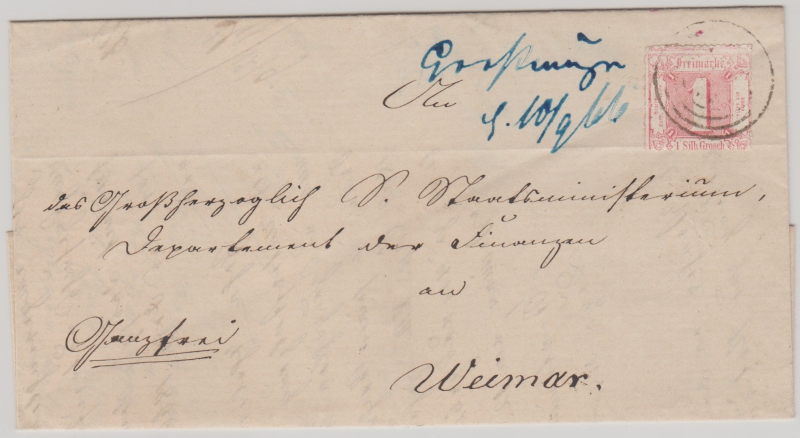 Großmügn
d. 10/9 66
Freimarke
1
1 Silb. Grosch
An
das Großherzoglich S. Staatsministerium,
Departement der Finanzen
an
Ganzfrei
Weimar.